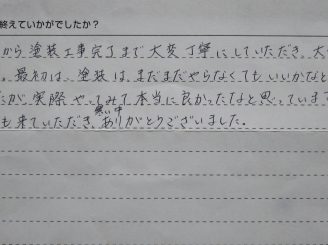 終えていかがでしたか？
から塗装工事完了まで大変丁寧にしていただき、大
。最初は、塗装は、まだまだやらなくてもいいかなと
が、実際やってみて本当に良かったなと思っています
も来ていただき、寒い中ありがとうございました。